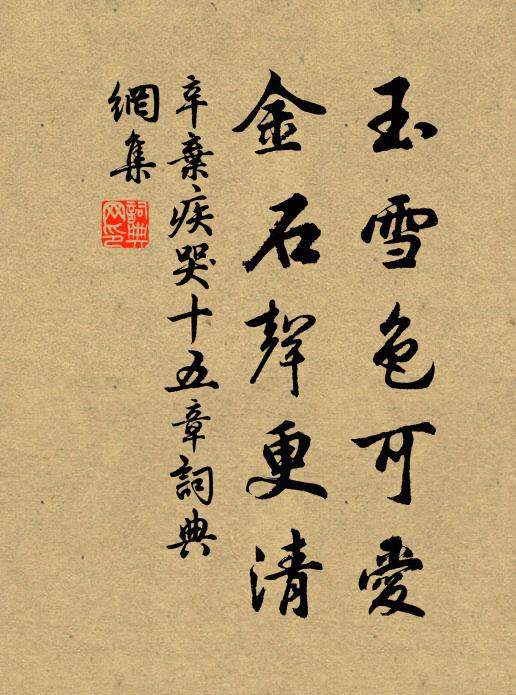 玉雪色可愛
金石聲更清
辛棄疾哭十五章詞典
網集
詞典網印